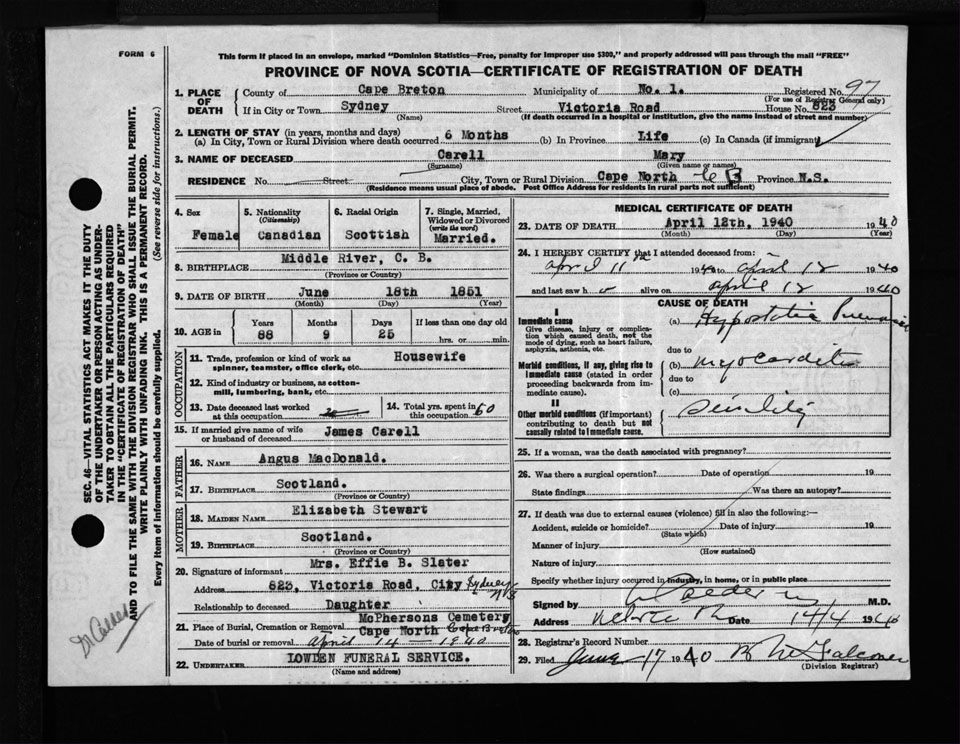 FORM 6
This form if placed in an envelope, marked "Dominion Statistics—Free, penalty for improper use $300," and properly addressed will pass through the mail "FREE"
PROVINCE OF NOVA SCOTIA—CERTIFICATE OF REGISTRATION OF DEATH
1. PLACE OF DEATH County of Cape Breton Municipality of No. 1. Registered No. 97
(For use of Registrar General only)
If in City or Town Sydney Street Victoria Road House No. 823
(Name) (If death occurred in a hospital or institution, give the name instead of street and number)
2. LENGTH OF STAY (in years, months and days)
(a) In City, Town or Rural Division where death occurred 6 Months (b) In Province Life (c) In Canada (if immigrant)
3. NAME OF DECEASED Carell Mary
(Surname) (Given name or names)
RESIDENCE No. Street City, Town or Rural Division Cape North C B Province N.S.
(Residence means usual place of abode. Post Office Address for residents in rural parts not sufficient)
4. Sex Female
5. Nationality (Citizenship) Canadian
6. Racial Origin Scottish
7. Single, Married, Widowed or Divorced (write the word) Married.
8. BIRTHPLACE Middle River, C. B.
(Province or Country)
9. DATE OF BIRTH June 18th 1851
(Month) (Day) (Year)
10. AGE in Years Months Days If less than one day old
88 9 25 hrs. or min.
OCCUPATION
11. Trade, profession or kind of work as spinner, teamster, office clerk, etc. Housewife
12. Kind of industry or business, as cotton-mill, lumbering, bank, etc.
13. Date deceased last worked at this occupation
14. Total yrs. spent in this occupation 60
15. If married give name of wife or husband of deceased James Carell
FATHER
16. NAME Angus MacDonald.
17. BIRTHPLACE Scotland.
(Province or Country)
MOTHER
18. MAIDEN NAME Elizabeth Stewart
19. BIRTHPLACE Scotland.
(Province or Country)
20. Signature of informant Mrs. Effie B. Slater
Address 823, Victoria Road, City Sydney N S
Relationship to deceased Daughter
21. Place of Burial, Cremation or Removal McPhersons Cemetery
Cape North Cape Breton
Date of burial or removal April 14 — 1940
22. UNDERTAKER LOWDEN FUNERAL SERVICE.
(Name and address)
MEDICAL CERTIFICATE OF DEATH
23. DATE OF DEATH April 12th, 1940 1940
(Month) (Day) (Year)
24. I HEREBY CERTIFY that I attended deceased from:
April 11th 1940 to April 12 1940
and last saw h alive on April 12 1940
CAUSE OF DEATH
I
Immediate cause (a) Hypostatic Pneumonia
Give disease, injury or complication which caused death, not the mode of dying, such as heart failure, asphyxia, asthenia, etc.
due to
Morbid conditions, if any, giving rise to immediate cause (stated in order proceeding backwards from immediate cause). (b) Myocarditis
due to
(c)
II
Other morbid conditions (if important) contributing to death but not causally related to immediate cause. Senility
25. If a woman, was the death associated with pregnancy?
26. Was there a surgical operation? Date of operation 19
State findings Was there an autopsy?
27. If death was due to external causes (violence) fill in also the following:—
Accident, suicide or homicide? Date of injury 19
(State which)
Manner of injury
(How sustained)
Nature of injury
Specify whether injury occurred in industry, in home, or in public place
Signed by M.D.
Address Date 14/4 1940
28. Registrar's Record Number
29. Filed June 17 1940 Falconer
(Division Registrar)
SEC. 46—VITAL STATISTICS ACT MAKES IT THE DUTY
OF THE UNDERTAKER OR PERSON ACTING AS UNDERTAKER TO OBTAIN ALL THE PARTICULARS REQUIRED
IN THE "CERTIFICATE OF REGISTRATION OF DEATH"
AND TO FILE THE SAME WITH THE DIVISION REGISTRAR WHO SHALL ISSUE THE BURIAL PERMIT.
WRITE PLAINLY WITH UNFADING INK. THIS IS A PERMANENT RECORD.
Every item of information should be carefully supplied. (See reverse side for instructions.)